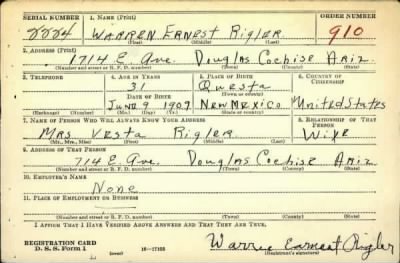 SERIAL NUMBER 1. NAME (Print) ORDER NUMBER
2224 WARREN ERNEST RIGLER 910
(First) (Middle) (Last)
2. ADDRESS (Print)
1714 E. Ave. Douglas Cochise Ariz.
(Number and street or R. F. D. number) (Town) (County) (State)
3. TELEPHONE 4. AGE IN YEARS 5. PLACE OF BIRTH 6. COUNTRY OF CITIZENSHIP
31 Questa
DATE OF BIRTH (Town or county)
June 9 1909 New Mexico United States
(Exchange) (Number) (Mo.) (Day) (Yr.) (State or country)
7. NAME OF PERSON WHO WILL ALWAYS KNOW YOUR ADDRESS 8. RELATIONSHIP OF THAT PERSON
Mrs Vesta Rigler Wife
(Mr., Mrs., Miss) (First) (Middle) (Last)
9. ADDRESS OF THAT PERSON
714 E. Ave. Douglas Cochise Ariz
(Number and street or R. F. D. number) (Town) (County) (State)
10. EMPLOYER'S NAME
None
11. PLACE OF EMPLOYMENT OR BUSINESS
(Number and street or R. F. D. number) (Town) (County) (State)
I AFFIRM THAT I HAVE VERIFIED ABOVE ANSWERS AND THAT THEY ARE TRUE.
REGISTRATION CARD
D. S. S. Form 1 (over) 16—17105 Warren Earnest Rigler
(Registrant's signature)